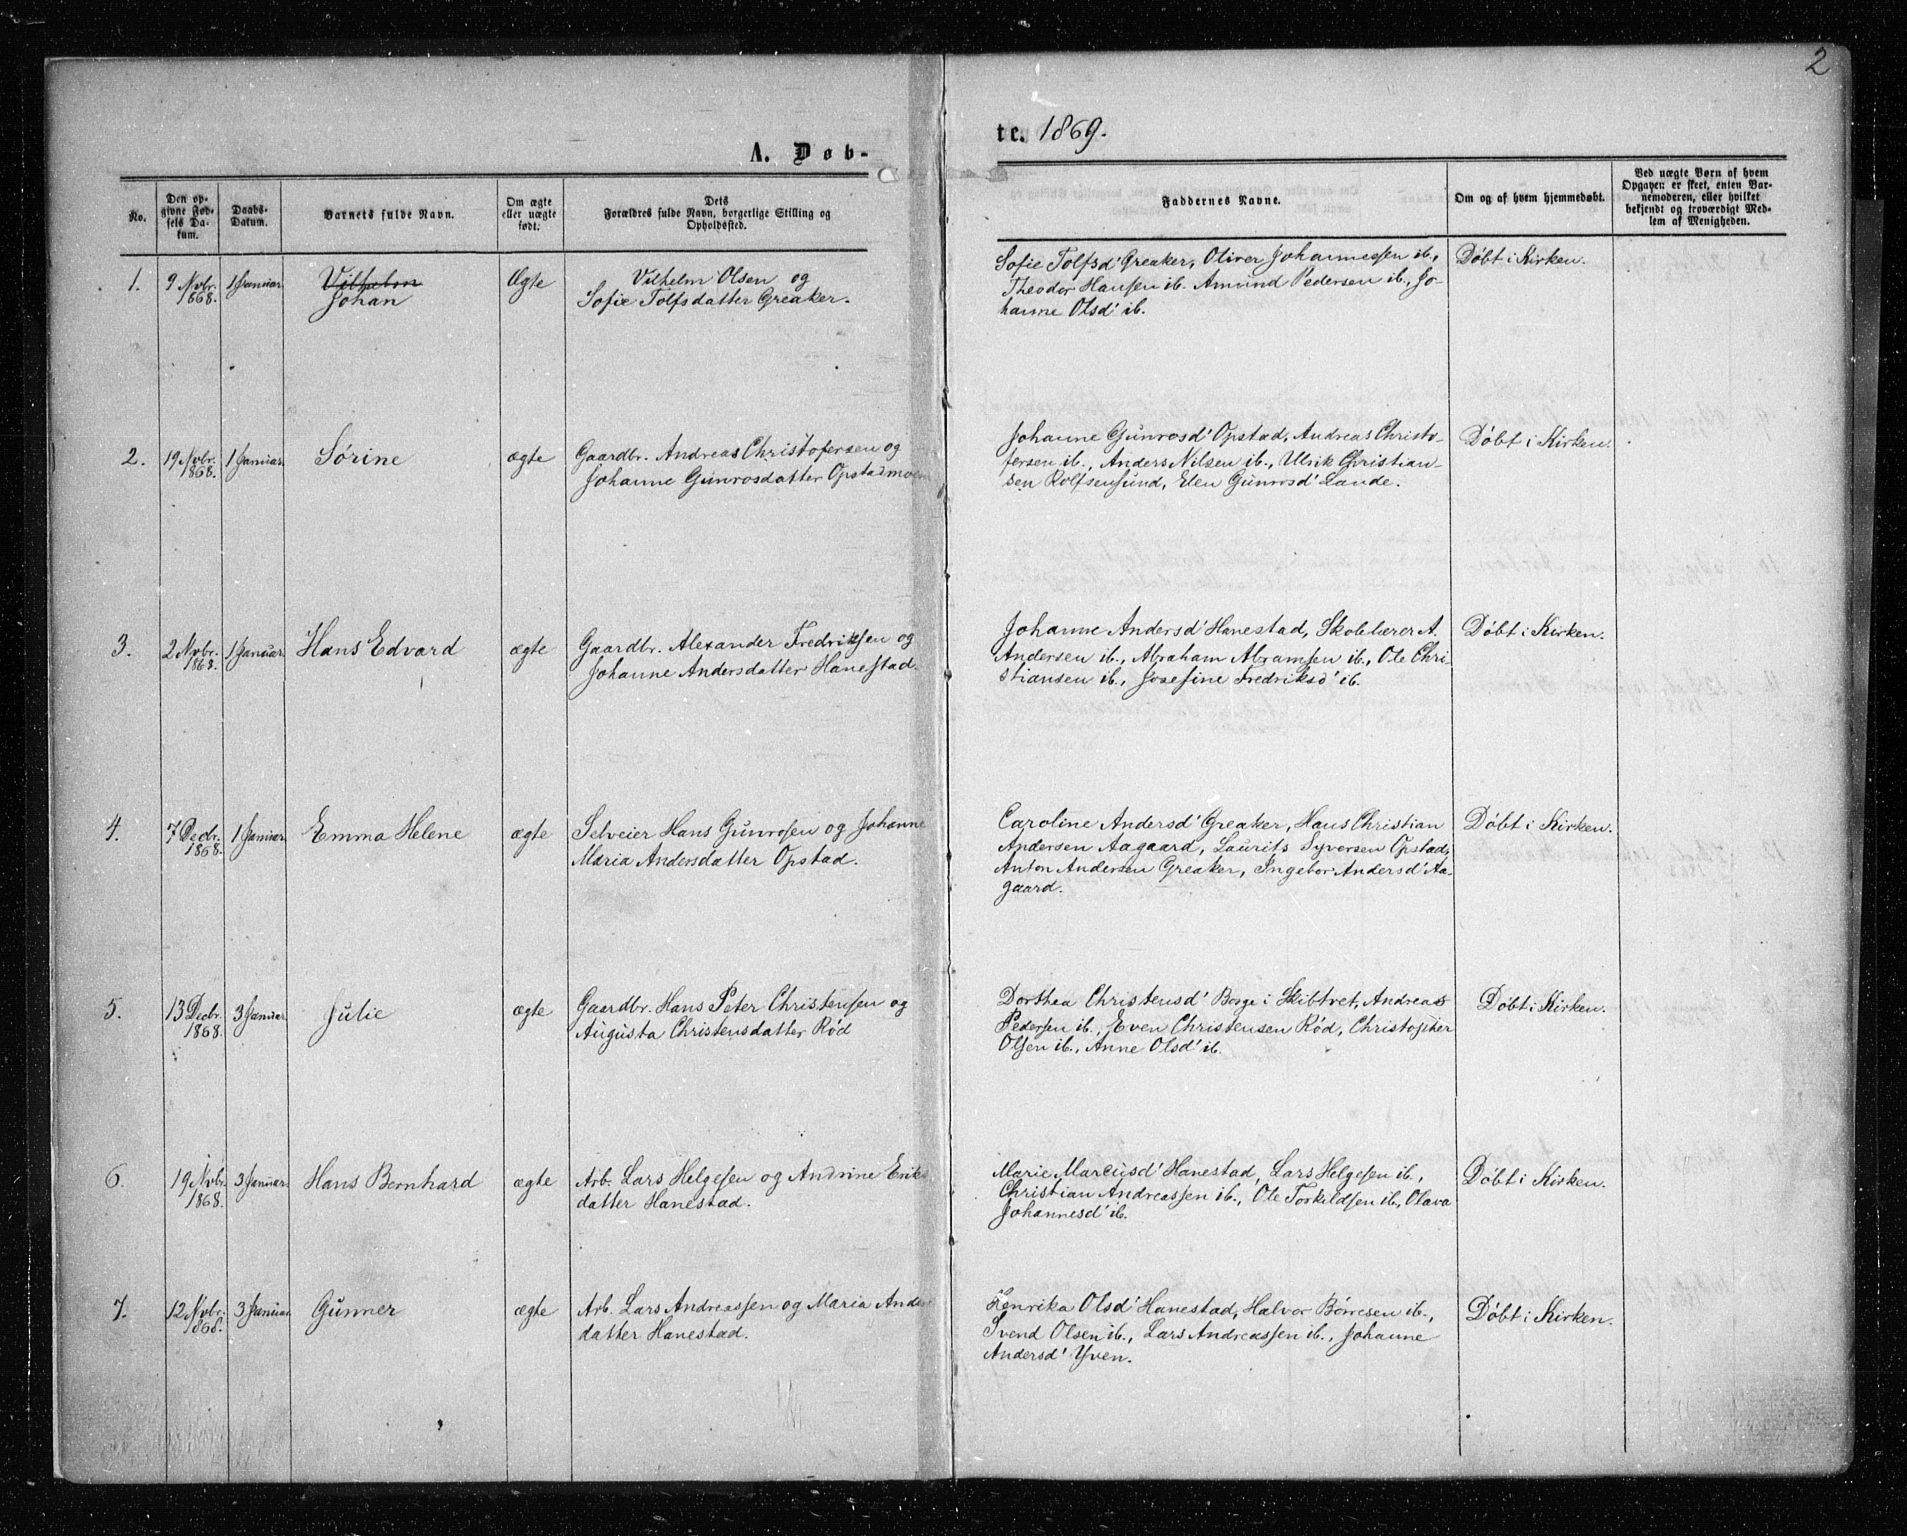 2
A. Døb-
te. 1869.
No.
Den op-
givne Fød-
sels Da-
tum.
Daabs-
Datum.
Barnets fulde Navn.
Om ægte
eller uægte
født.
Dets
Forældres fulde Navn, borgerlige Stilling og
Opholdssted.
Faddernes Navne.
Om og af hvem hjemmedøbt.
Ved uægte Børn af hvem
Opgaven er skeet, enten Bar-
nemoderen, eller hvilket
bekjendt og troværdigt Med-
lem af Menigheden.
1.
9 Nvbr.
1868.
1 Januar.
Vilhelm
Johan
Ægte
Vilhelm Olsen og
Sofie Tolfsdatter Greaker.
Sofie Tolfsd' Greaker, Oliver Johannessen ib.,
Theodor Hansen ib. Amund Pedersen ib., Jo-
hanne Olsd' ib.
Døbt i Kirken.
2.
19 Nvbr.
1868.
1 Januar.
Sørine
ægte
Gaardbr. Andreas Christofersen og
Johanne Gunrosdatter Opstadmoen
Johanne Gunrosd' Opstad, Andreas Christo-
fersen ib., Anders Nilsen ib., Ulrik Christian-
sen Rolfsensund, Elen Gunrosd' Lande.
Døbt i Kirken.
3.
2 Nvbr.
1868.
1 Januar.
Hans Edvard
ægte
Gaardbr. Alexander Fredriksen og
Johanne Andersdatter Hanestad.
Johanne Andersd' Hanestad, Skolelærer A.
Andersen ib., Abraham Abramsen ib., Ole Chri-
stiansen ib., Josefine Fredriksd' ib.
Døbt i Kirken.
4.
7 Decbr.
1868.
1 Januar.
Emma Helene
ægte
Selveier Hans Gunrosen og Johanne
Maria Andersdatter Opstad.
Caroline Andersd' Greaker, Hans Christian
Andersen Aagaard, Laurits Syversen Opstad,
Anton Andersen Greaker, Ingebor Andersd' Aa-
gaard.
Døbt i Kirken.
5.
13 Decbr.
1868.
3 Januar.
Julie
ægte
Gaardbr. Hans Peter Christensen og
Augusta Christensdatter Rød
Dorthea Christensd' Borge i Skibtvet, Andreas
Pedersen ib., Even Christensen Rød, Christopher
Olsen ib., Anne Olsd' ib.
Døbt i Kirken.
6.
19 Nvbr.
1868.
3 Januar.
Hans Bernhard
ægte
Arb. Lars Helgesen og Andrine Eriks
datter Hanestad.
Marie Marcusd' Hanestad, Lars Helgesen ib.,
Christian Andreassen ib., Ole Torkildsen ib., Olava
Johannesd' ib.
Døbt i Kirken.
7.
12 Nvbr.
1868.
3 Januar.
Gunner
ægte
Arb. Lars Andreassen og Maria Anders
datter Hanestad.
Henrika Olsd' Hanestad, Halvor Børresen ib.,
Svend Olsen ib., Lars Andreassen ib., Johanne
Andersd' Yven.
Døbt i Kirken.